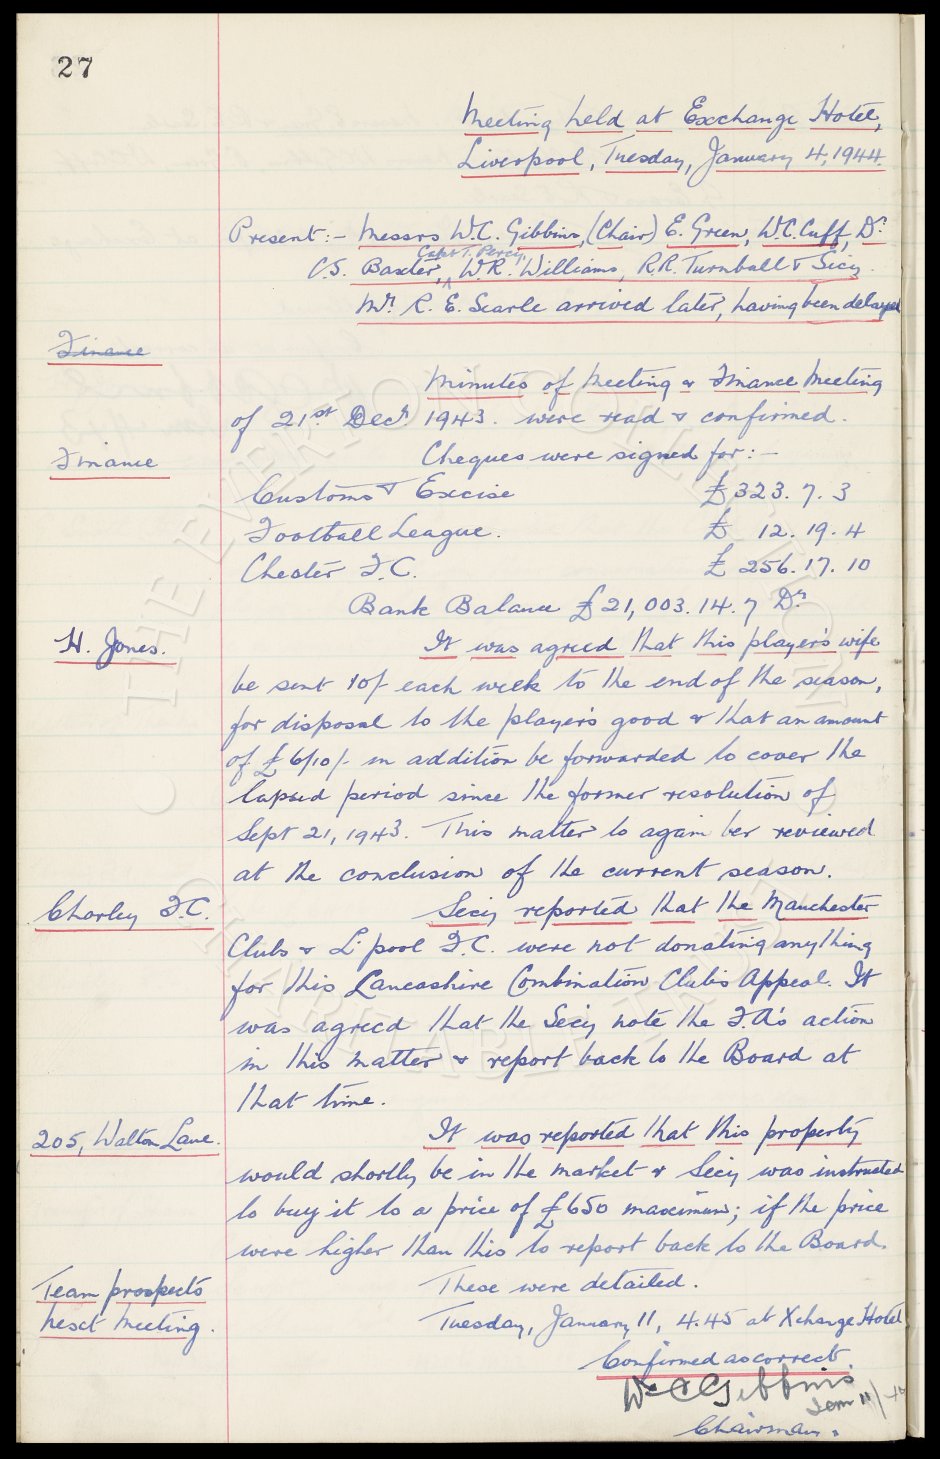 27
Meeting held at Exchange Hotel,
Liverpool, Tuesday, January 4, 1944.
Present:- Messrs W.C. Gibbins, (Chair) E. Green, W.C. Cuff, Dr
Capt T. Percy,
C.S. Baxter, W.R. Williams, R.R. Turnbull & Secy.
Mr. R. E. Searle arrived later, having been delayed
Finance
Minutes of Meeting & Finance Meeting
of 21st Decr 1943. were read & confirmed.
Finance
Cheques were signed for:-
Customs & Excise £323. 7. 3
Football League. £ 12. 19. 4
Chester F.C. £ 256. 17. 10
Bank Balance £21,003. 14. 7 Dr
H. Jones.
It was agreed that this player's wife
be sent 10/ each week to the end of the season,
for disposal to the player's good & that an amount
of £6/10/- in addition be forwarded to cover the
lapsed period since the former resolution of
Sept 21, 1943. This matter to again ber reviewed
at the conclusion of the current season.
Chorley F.C.
Secy reported that the Manchester
Clubs & L'pool F.C. were not donating anything
for this Lancashire Combination Club's Appeal. It
was agreed that the Secy note the F.A's action
in this matter & report back to the Board at
that time.
205, Walton Lane.
It was reported that this property
would shortly be in the market & Secy was instructed
to buy it to a price of £650 maximum; if the price
were higher than this to report back to the Board.
Team prospects
These were detailed.
Next Meeting.
Tuesday, January 11, 4.45 at Xchange Hotel
Confirmed as correct.
Wm C Gibbins
Jan 11/
Chairman.
THE EVERTON COLLECTION
CHARITABLE TRUST